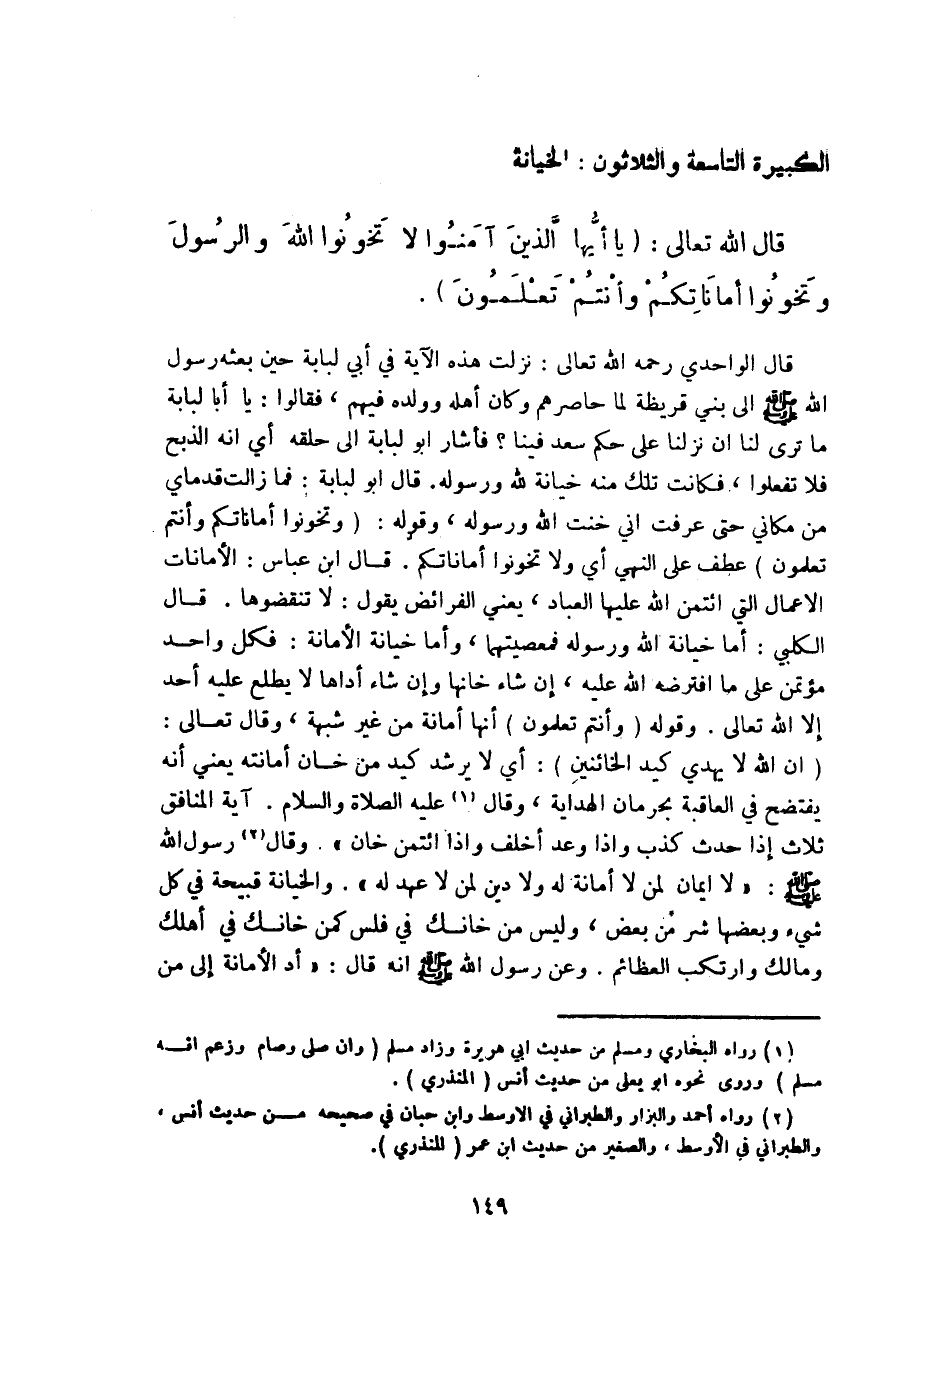 الكبيرة التاسعة والثلاثون : الخيانة
قال الله تعالى : ( يا أَيُّها الَّذينَ آمَنُوا لا تَخُونُوا اللهَ والرسُولَ
وتَخونُوا أماناتِكمْ وأنْتمْ تَعْلَمُونَ ) .
قال الواحدي رحمه الله تعالى : نزلت هذه الآية في أبي لبابة حين بعثه رسول
الله ﷺ الى بني قريظة لما حاصرهم وكان أهله وولده فيهم ، فقالوا : يا أبا لبابة
ما ترى لنا ان نزلنا على حكم سعد فينا ؟ فأشار ابو لبابة الى حلقه أي انه الذبح
فلا تفعلوا ، فكانت تلك منه خيانة لله ورسوله. قال ابو لبابة : فما زالت قدماي
من مكاني حتى عرفت اني خنت الله ورسوله ، وقوله : ( وتخونوا أماناتكم وأنتم
تعلمون ) عطف على النهي أي ولا تخونوا أماناتكم . قـال ابن عباس : الأمانات
الاعمال التي ائتمن الله عليها العباد ، يعني الفرائض يقول : لا تنقضوها . قـال
الكلبي : أما خيانة الله ورسوله فمعصيتهما ، وأما خيانة الأمانة : فكل واحـد
مؤتمن على ما افترضه الله عليه ، إن شاء خانها وإن شاء أداها لا يطلع عليه أحد
إلا الله تعالى . وقوله ( وأنتم تعلمون ) أنها أمانة من غير شبهة ، وقال تعـالى :
( ان الله لا يهدي كيد الخائنين ) : أي لا يرشد كيد من خـان أمانته يعني أنه
يفتضح في العاقبة بحرمان الهداية ، وقال (١) عليه الصلاة والسلام . آية المنافق
ثلاث إذا حدث كذب واذا وعد أخلف واذا ائتمن خان » . وقال(٢) رسول الله
ﷺ : « لا ايمان لمن لا أمانة له ولا دين لمن لا عهد له » . والخيانة قبيحة في كل
شيء وبعضها شر من بعض ، وليس من خانـك في فلس كمن خانـك في أهلك
ومالك وارتكب العظائم . وعن رسول الله ﷺ انه قال : « أد الأمانة إلى من
(١) رواه البخاري ومسلم من حديث ابي هريرة وزاد مسلم ( وان صلى وصام وزعم انـه
مسلم ) وروى نحوه ابو يعلى من حديث أنس ( المنذري ) .
(٢) رواه أحمد والبزار والطبراني في الاوسط وابن حبان في صحيحه مـن حديث أنس ،
والطبراني في الأوسط ، والصغير من حديث ابن عمر ( للمنذري ).
١٤٩